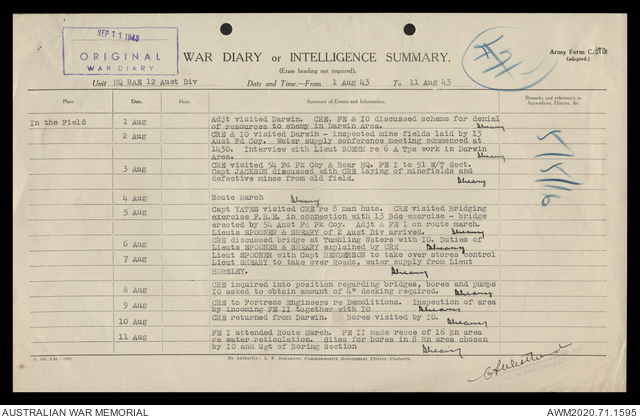 SEP 11 1943
ORIGINAL
WAR DIARY
WAR DIARY or INTELLIGENCE SUMMARY.
(Erase heading not required).
Army Form C.
(adapted.)
Unit HQ RAE 12 Aust Div
Date and Time.—From 1 Aug 43 To 11 Aug 43
Place. Date. Hour. Summary of Events and Information. Remarks and references to
Appendices, Diaries, &c.
In the Field 1 Aug Adjt visited Darwin. CRE, FE & IO discussed scheme for denial
of resources to enemy in Darwin Area. Sheary
2 Aug CRE & IO visited Darwin - inspected mine fields laid by 13
Aust Fd Coy. Water supply conference meeting commenced at
1430. Interview with Lieut BOEHM re 6 A Tps work in Darwin
Area. Sheary
3 Aug CRE visited 54 Fd Pk Coy & Rear HQ. FE I to 51 E/T Sect.
Capt JACKSON discussed with CRE laying of minefields and
defective mines from old field. Sheary
4 Aug Route March Sheary
5 Aug Capt YATES visited CRE re 8 man huts. CRE visited Bridging
exercise F.B.E. in connection with 13 Bde exercise - bridge
erected by 54 Aust Fd Pk Coy. Adjt & FE I on route march.
Lieuts SPOONER & SHEARY of 2 Aust Div arrived. Sheary
6 Aug CRE discussed bridge at Tumbling Waters with IO. Duties of
Lieuts SPOONER & SHEARY explained by CRE Sheary
7 Aug Lieut SPOONER with Capt HENDERSON to take over stores control
Lieut SHEARY to take over Roads, water supply from Lieut
HORSLEY. Sheary
8 Aug CRE inquired into position regarding bridges, bores and pumps
IO asked to obtain amount of 4" decking required. Sheary
9 Aug CRE to Fortress Engineers re Demolitions. Inspection of area
by incoming FE II together with IO Sheary
10 Aug CRE returned from Darwin. Bores visited by IO. Sheary
11 Aug FE I attended Route March. FE II made recce of 16 Bn area
re water reticulation. Sites for bores in 8 Bn area chosen
by IO and Sgt of Boring Section Sheary
By Authority: L. F. Johnston, Commonwealth Government Printer, Canberra.
AUSTRALIAN WAR MEMORIAL
AWM2020.71.1595